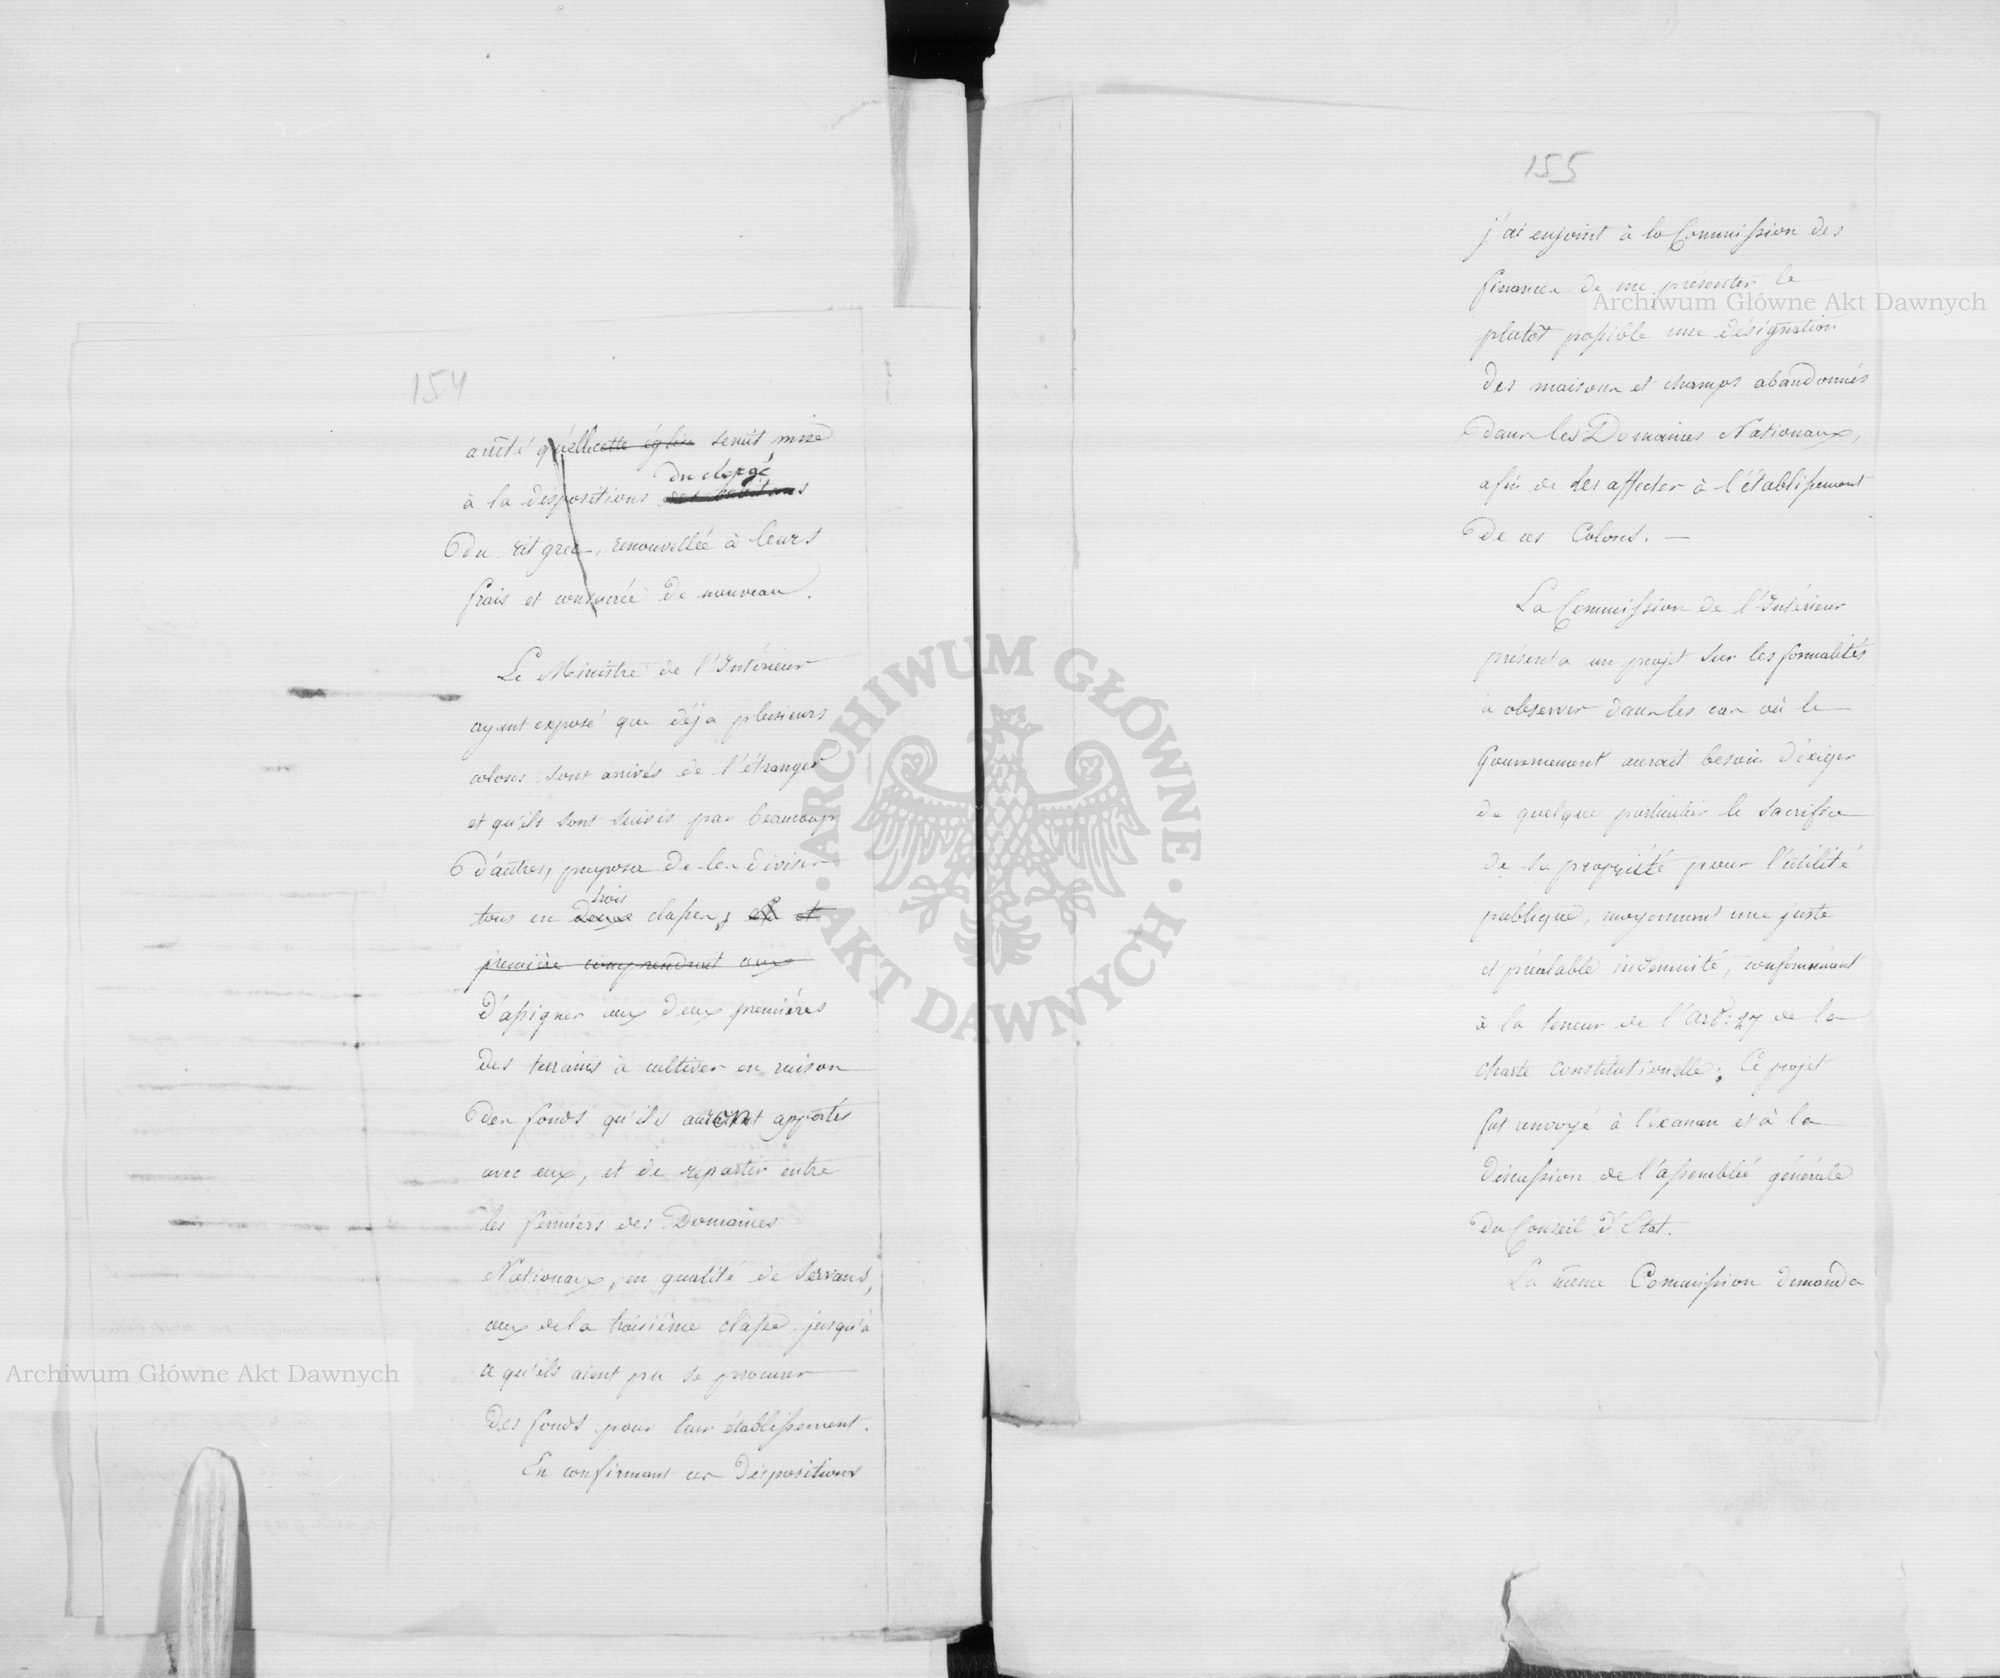 154
arrêté qu'elle cette église serait mise
du clergé
à la dispositions
du rit grec, renouvellée à leurs
frais et consacrée de nouveau.
Le Ministre de l'Intérieur
ayant exposé que déja plusieurs
colons sont arrivés de l'étranger
et qu'ils sont suivis par beaucoup
d'autres, proposa de les diviser
trois
tous en deux classes, et
première comprendrait ceux
d'assigner aux deux premières
des terrains à cultiver en raison
des fonds qu'ils auront apportés
avec eux, et de répartir entre
les fermiers des Domaines
Nationaux, en qualité de servans,
ceux de la troisième classe jusqu'à
ce qu'ils aient pu se procurer
des fonds pour leur établissement.
En confirmant ces dispositions
155
j'ai enjoint à la Commission des
finances de me présenter le
plutôt possible une désignation
des maisons et champs abandonnés
dans les Domaines Nationaux,
afin de les affecter à l'établissement
de ces Colons. —
La Commission de l'Intérieur
présenta un projet sur les formalités
à observer dans les cas où le
Gouvernement aurait besoin d'exiger
de quelque particulier le sacrifice
de sa propriété pour l'utilité
publique, moyennant une juste
et préalable indemnité, conformément
à la teneur de l'art: 27 de la
charte constitutionelle; Ce projet
fut renvoyé à l'examen et à la
discussion de l'assemblée générale
du Conseil d'Etat.
La même Commission demanda
Archiwum Główne Akt Dawnych
Archiwum Główne Akt Dawnych
ARCHIWUM GŁÓWNE AKT DAWNYCH